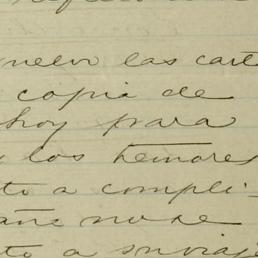 nuevo las cart
copia de
hoy para
los temores
to a compli-
ans no se
to a su viaje